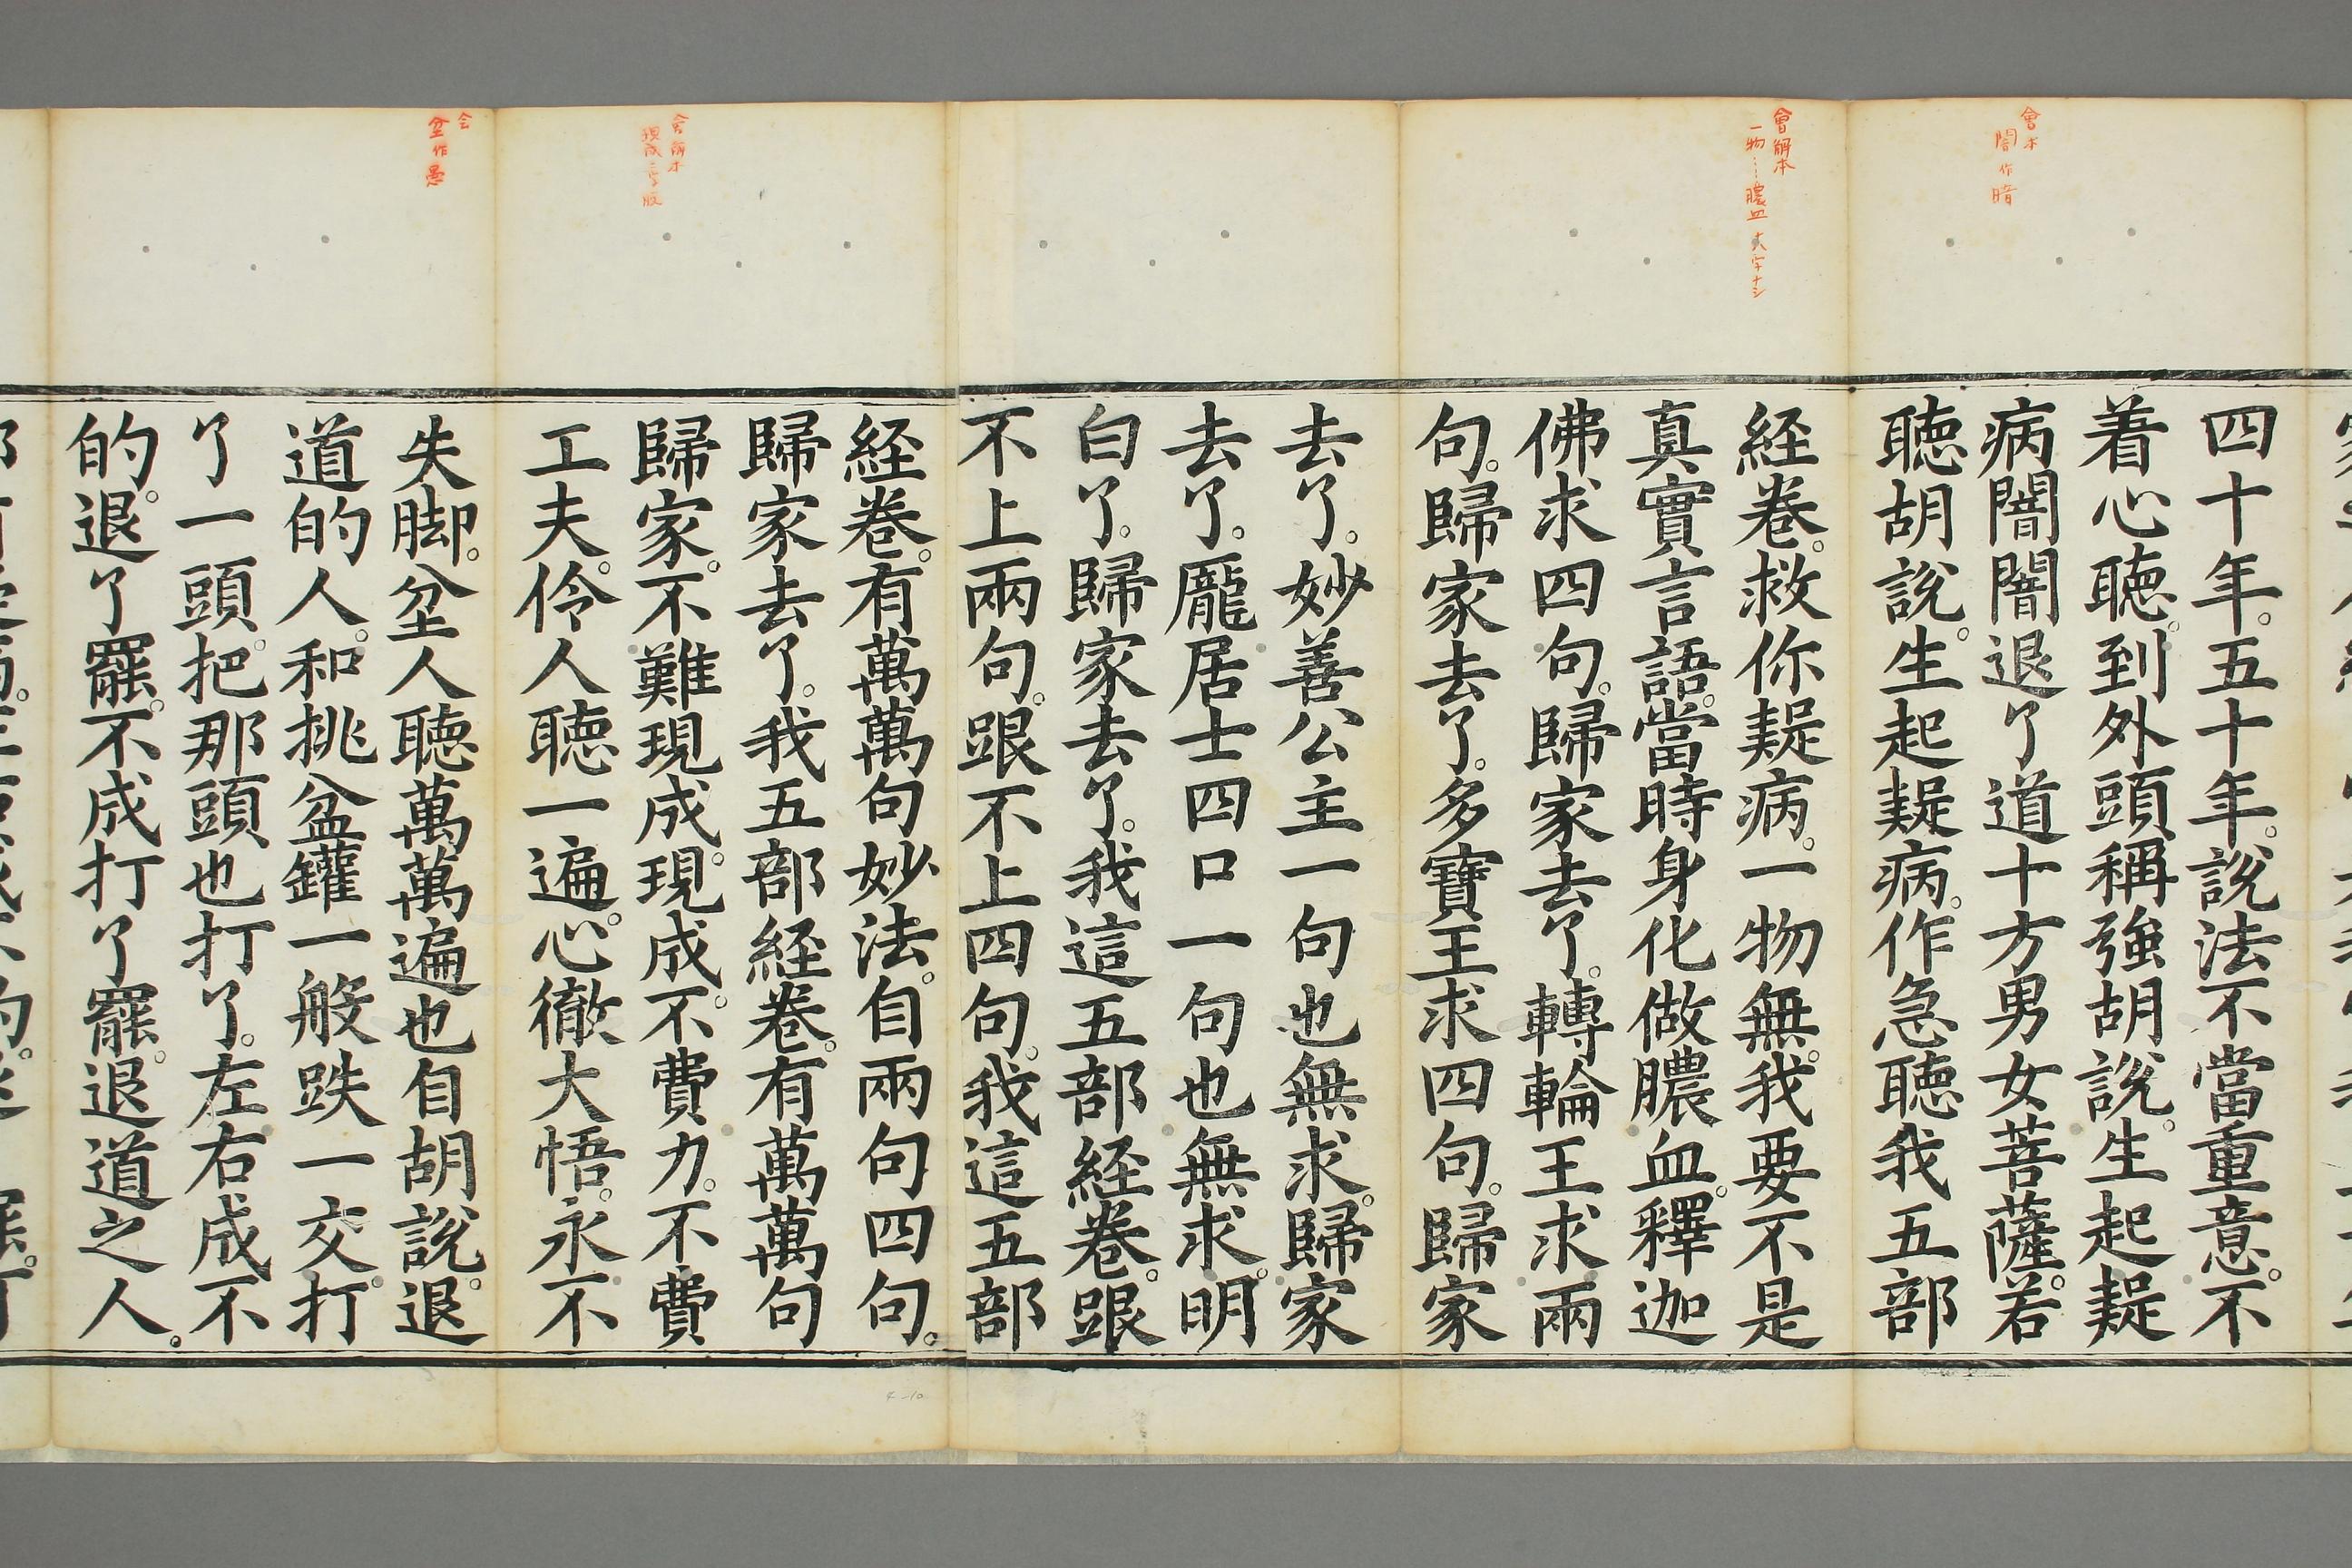 四十年。五十年。說法不當重意。不
着心聽。到外頭稱強胡說。生起疑
病闇闇退了道十方男女菩薩。若
聽胡說。生起疑病。作急聽我五部
経卷。救你疑病。一物無。我要不是
真實言語。當時身化做膿血。釋迦
佛求四句。歸家去了。轉輪王求兩
句。歸家去了。多寶王求四句。歸家
去了。妙善公主一句也無求。歸家
去了。龐居士四口一句也無求。明
白了。歸家去了。我這五部経卷。跟
不上兩句。跟不上四句。我這五部
経卷。有萬萬句妙法。自兩句四句。
歸家去了。我五部経卷。有萬萬句
歸家。不難現成。現成。不費力。不費
工夫。伶人聽一遍。心徹大悟。永不
失脚。坌人聽萬萬遍也自胡說。退
道的人。和挑盆鑵一般跌一交。打
了一頭。把那頭也打了。左右成不
的。退了罷。不成打了罷。退道之人。
會本
闇作暗
會解本
一物……膿血 弍字ナシ
會解本
現成二字脫
会
坌作愚
4-10